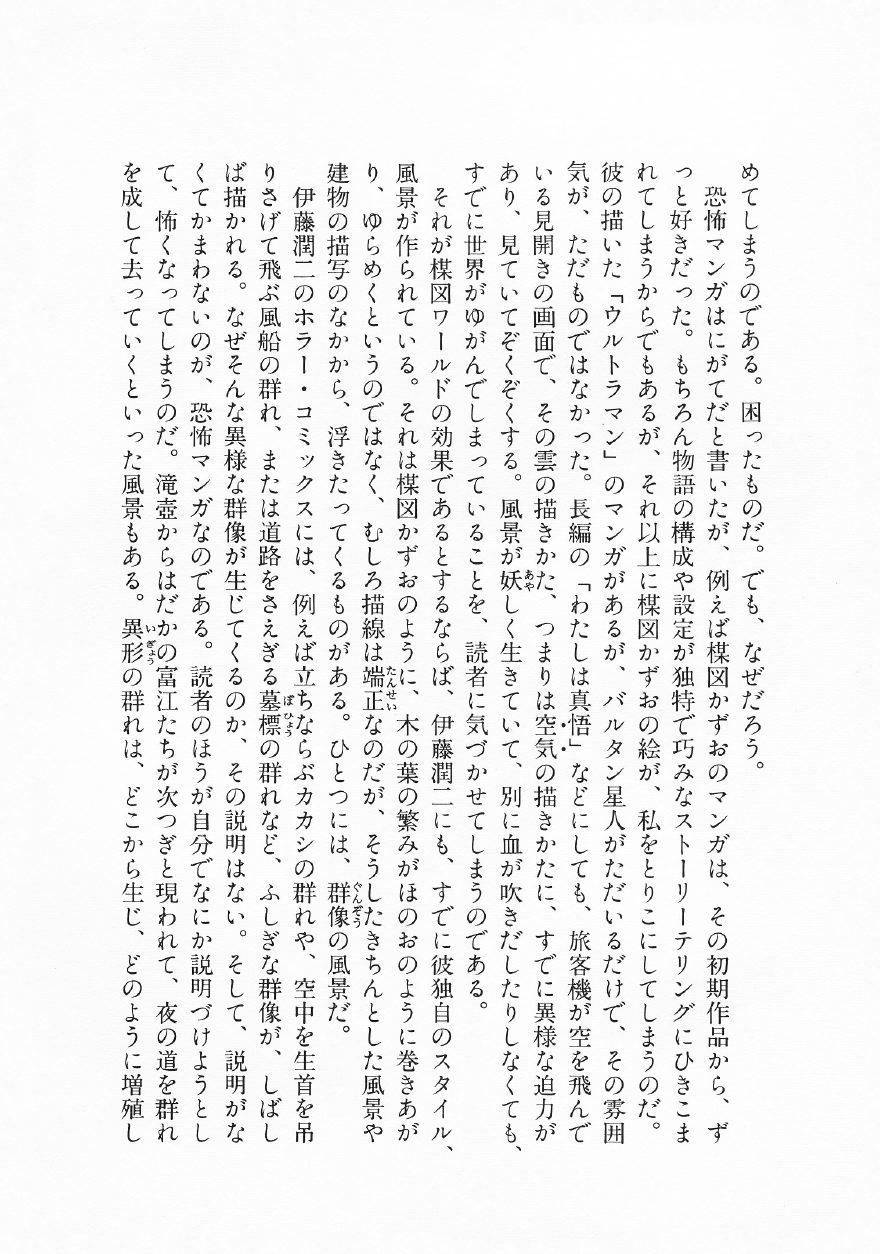 めてしまうのである。困ったものだ。でも、なぜだろう。
　恐怖マンガはにがてだと書いたが、例えば楳図かずおのマンガは、その初期作品から、ず
っと好きだった。もちろん物語の構成や設定が独特で巧みなストーリーテリングにひきこま
れてしまうからでもあるが、それ以上に楳図かずおの絵が、私をとりこにしてしまうのだ。
彼の描いた「ウルトラマン」のマンガがあるが、バルタン星人がただいるだけで、その雰囲
気が、ただものではなかった。長編の「わたしは真悟」などにしても、旅客機が空を飛んで
いる見開きの画面で、その雲の描きかた、つまりは空気の描きかたに、すでに異様な迫力が
あり、見ていてぞくぞくする。風景が妖しく生きていて、別に血が吹きだしたりしなくても、
すでに世界がゆがんでしまっていることを、読者に気づかせてしまうのである。
　それが楳図ワールドの効果であるとするならば、伊藤潤二にも、すでに彼独自のスタイル、
風景が作られている。それは楳図かずおのように、木の葉の繁みがほのおのように巻きあが
り、ゆらめくというのではなく、むしろ描線は端正なのだが、そうしたきちんとした風景や
建物の描写のなかから、浮きたってくるものがある。ひとつには、群像の風景だ。
　伊藤潤二のホラー・コミックスには、例えば立ちならぶカカシの群れや、空中を生首を吊
りさげて飛ぶ風船の群れ、または道路をさえぎる墓標の群れなど、ふしぎな群像が、しばし
ば描かれる。なぜそんな異様な群像が生じてくるのか、その説明はない。そして、説明がな
くてかまわないのが、恐怖マンガなのである。読者のほうが自分でなにか説明づけようとし
て、怖くなってしまうのだ。滝壺からはだかの富江たちが次つぎと現われて、夜の道を群れ
を成して去っていくといった風景もある。異形の群れは、どこから生じ、どのように増殖し